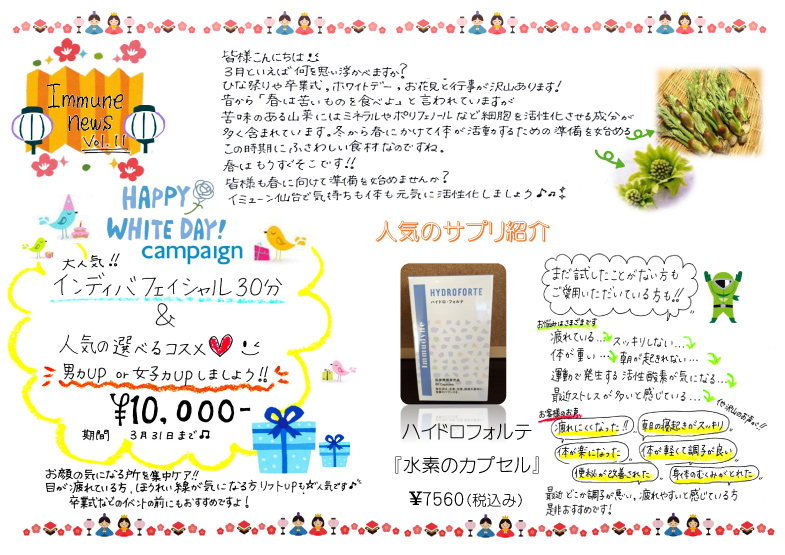 Immune
news
Vol.11
皆様こんにちは
3月といえば何を思い浮かべますか?
ひな祭りや卒業式、ホワイトデー、お花見と行事が沢山あります!
昔から「春は苦いものを食べよ」と言われていますが
苦味のある山菜にはミネラルやポリフェノールなど細胞を活性化させる成分が
多く含まれています。冬から春にかけて体が活動するための準備を始める
この時期にふさわしい食材なのですね。
春はもうすぐそこです!!
皆様も春に向けて準備を始めませんか?
イミューン仙台で気持ちも体も元気に活性化しましょう♪♫
HAPPY
WHITE DAY!
campaign
大人気!!
インディバフェイシャル30分
&
人気の選べるコスメ
男力UP or 女子力UPしましょう!!
¥10,000-
期間 3月31日まで♫
お顔の気になる所を集中ケア!!
目が疲れている方、ほうれい線が気になる方リフトUPも☆人気です♪
卒業式などのイベントの前にもおすすめですよ!
人気のサプリ紹介
HYDROFORTE
ハイドロ・フォルテ
Immudyne
ハイドロフォルテ
『水素のカプセル』
¥7560(税込み)
まだ試したことがない方も
ご愛用いただいている方も!!
お悩みはさまざまです
疲れている… スッキリしない…
体が重い… 朝が起きれない…
運動で発生する活性酸素が気になる…
最近ストレスが多いと感じている…
他沢山のお声が!!
お客様のお声
疲れにくくなった!! 朝の寝起きがスッキリ
体が楽になった 体が軽くて調子が良い
便秘が改善された 身体のむくみがとれた
最近どこか調子が悪い、疲れやすいと感じている方
是非おすすめです!